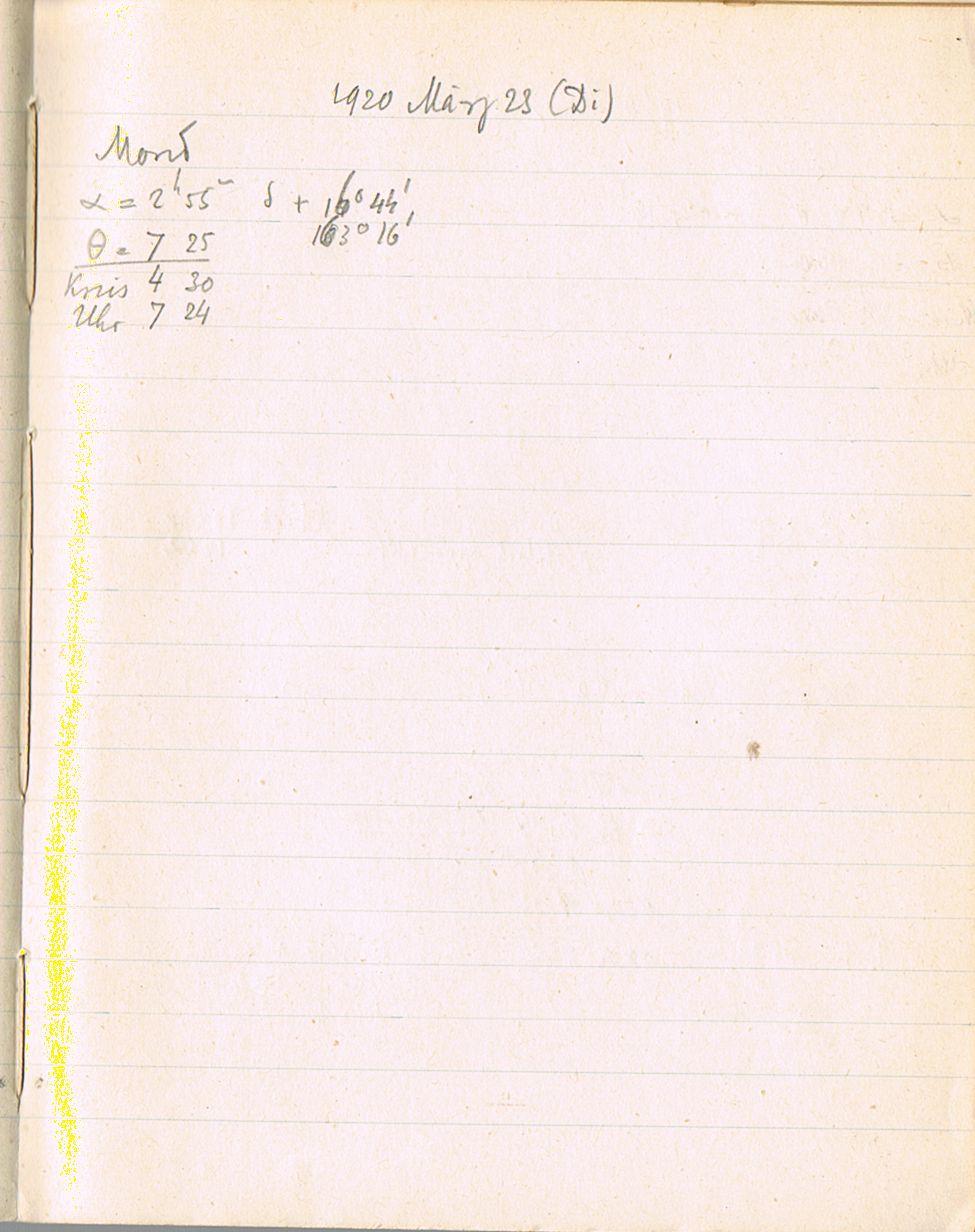 1920 März 23 (Di)
Mond
α = 2ʰ 55ᵐ δ + 16° 44'
163° 16'
θ = 7 25
Kreis 4 30
Uhr 7 24